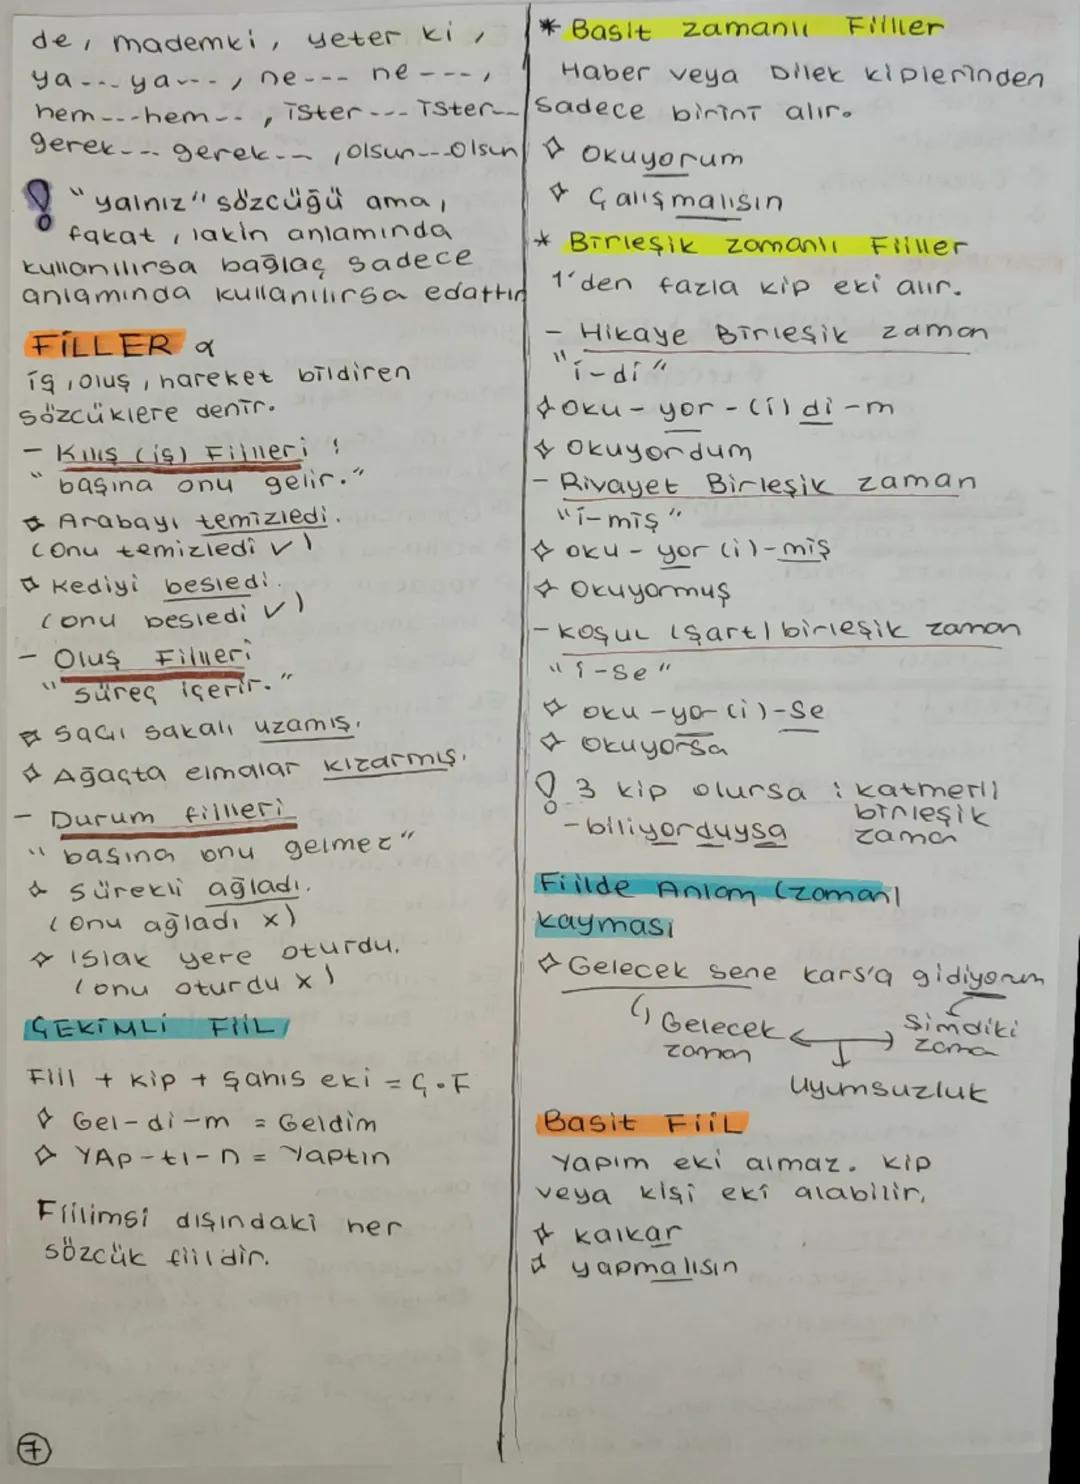 de, mademki, yeter ki,
ya--- ya---, ne--- ne---,
hem---hem--, ister --- ister--
gerek--- gerek--, olsun---olsun
! "yalnız" sözcüğü ama,
fakat, lakin anlamında
kullanılırsa bağlaç sadece
anlamında kullanılırsa edattır
FİİLLER
iş, oluş, hareket bildiren
sözcüklere denir.
- Kılış (iş) Fiilleri :
"başına onu gelir."
Arabayı temizledi.
(Onu temizledi ✓)
Kediyi besledi.
(onu besledi ✓)
- Oluş Fiilleri
"süreç içerir."
Saçı sakalı uzamış.
Ağaçta elmalar kızarmış.
- Durum fiilleri
"başına onu gelmez"
sürekli ağladı.
(Onu ağladı x)
Islak yere oturdu.
(onu oturdu x)
ÇEKİMLİ FİİL
Fiil + Kip + Şahıs eki = Ç.F
Gel-di-m = Geldim
YAp-tı-n = Yaptın
Fiilimsi dışındaki her
sözcük fiildir.
7
* Basit zamanlı Fiiller
Haber veya Dilek kiplerinden
sadece birini alır.
Okuyorum
Çalışmalısın
* Birleşik zamanlı Fiiller
1'den fazla kip eki alır.
- Hikaye Birleşik zaman
"i-di"
oku-yor-(i)di-m
okuyordum
- Rivayet Birleşik zaman
"i-miş"
oku-yor(i)-miş
Okuyormuş
- Koşul (şart) birleşik zaman
"i-se"
oku-yor(i)-se
Okuyorsa
! 3 kip olursa : katmerli
birleşik
zaman
- biliyorduysa
Fiilde Anlam (zaman)
kayması
Gelecek sene Kars'a gidiyorum
Gelecek
zaman
Şimdiki
zaman
Uyumsuzluk
Basit FİİL
Yapım eki almaz. Kip
veya kişi eki alabilir.
kalkar
yapmalısın